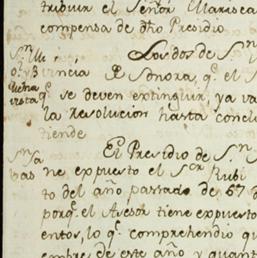 tribuir el Señor Marisca
compensa de dho Presidio
Los dos de Sn
vincia de Sonora, qe el S
qe se deven extinguir, ya va
la Resolucion hasta conclu
tiende
El Presidio de Sn
bas ne expuesto el Sor Rubi
to del año pasado de 67 d
porqe el Asesor tiene expuesto
entos, lo qe comprehendio qu
embre de este año y quant